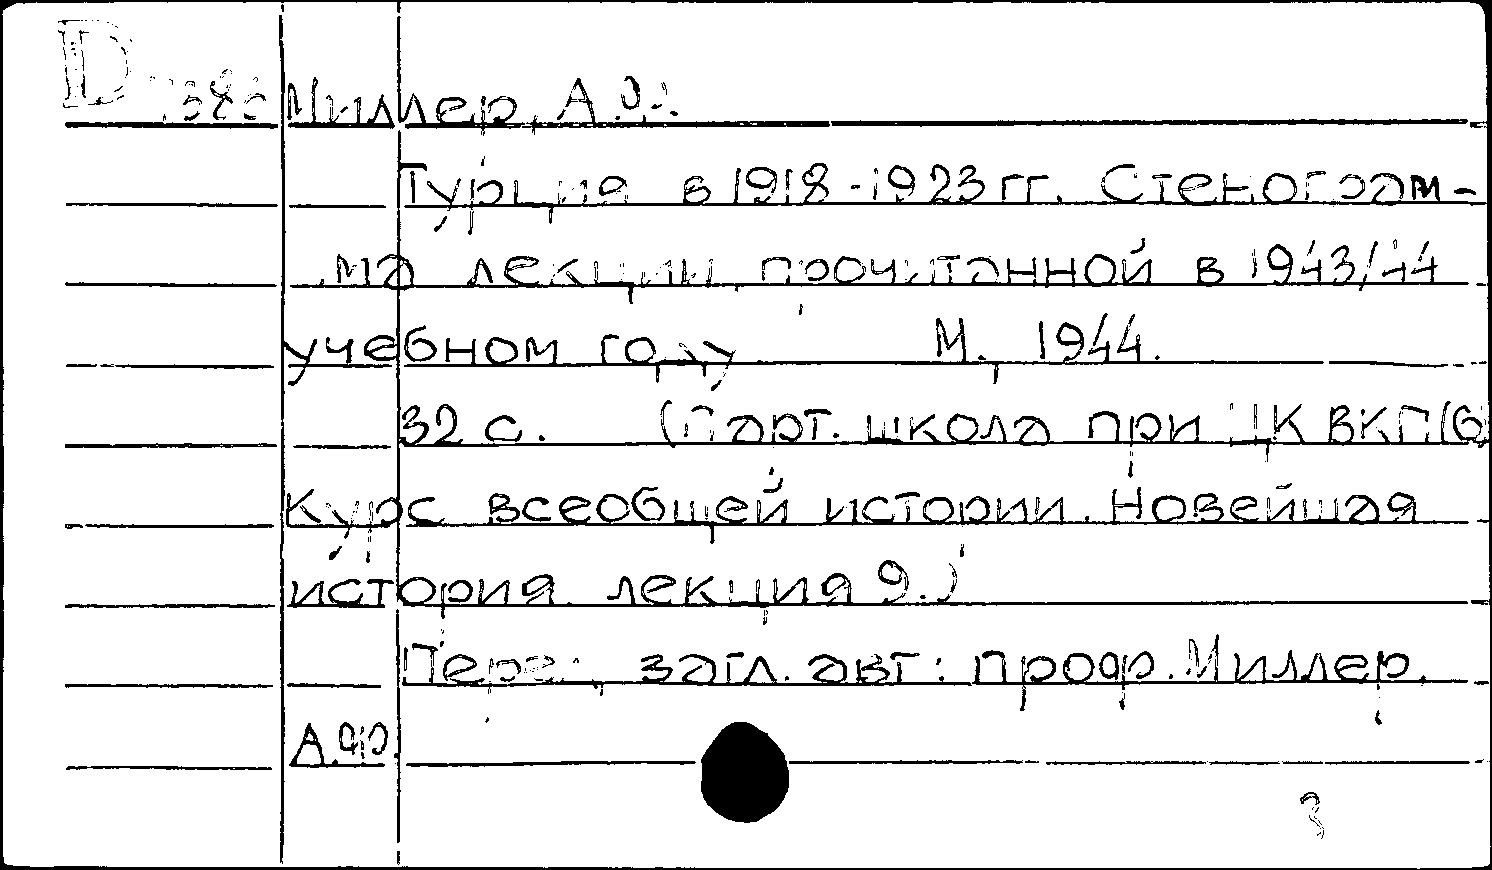 D
Миллер, А.Ф.
Турция в 1918-1923 гг. Стенограм-
ма лекции, прочитанной в 1943/44
учебном году. М., 1944.
32 с. (Парт. школа при ЦК ВКП(б)
Курс всеобщей истории. Новейшая
история. лекция 9.)
Перед загл. авт: проф. Миллер,
А.Ф.
3